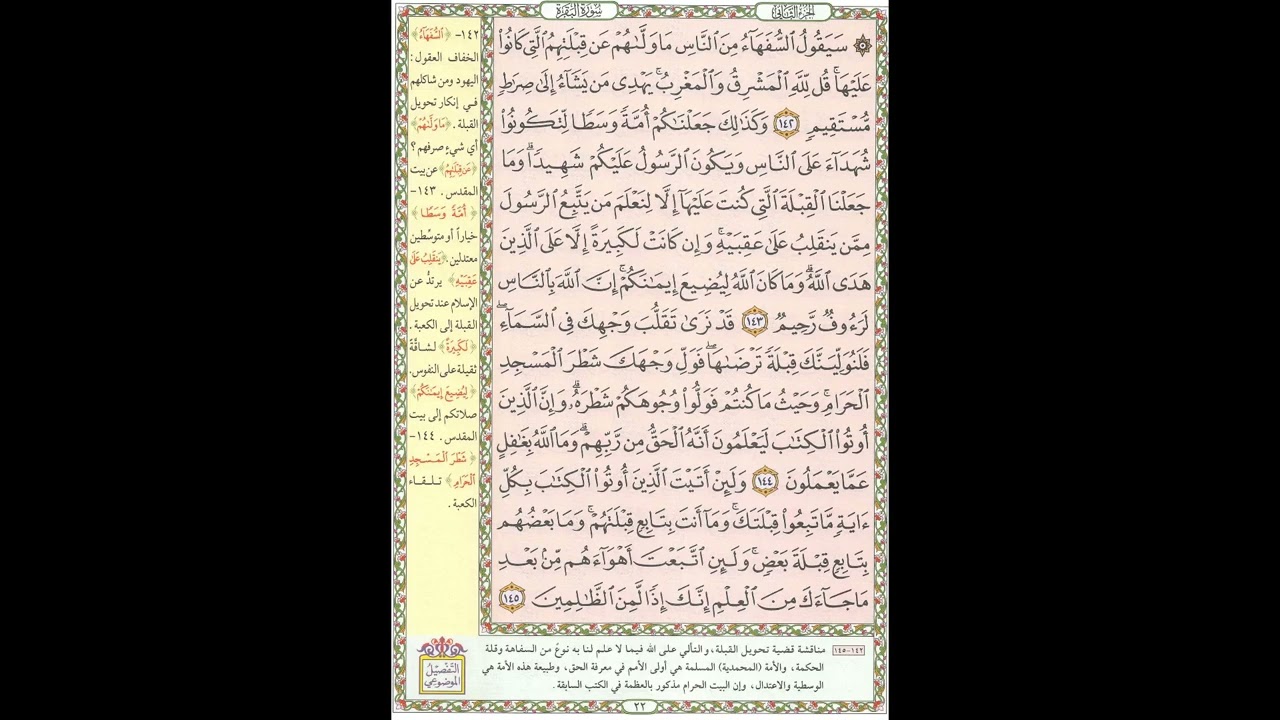 الجزء الثاني
سورة البقرة
۞ سَيَقُولُ ٱلسُّفَهَآءُ مِنَ ٱلنَّاسِ مَا وَلَّىٰهُمْ عَن قِبْلَتِهِمُ ٱلَّتِى كَانُوا۟
عَلَيْهَا ۚ قُل لِّلَّهِ ٱلْمَشْرِقُ وَٱلْمَغْرِبُ ۚ يَهْدِى مَن يَشَآءُ إِلَىٰ صِرَٰطٍ
مُّسْتَقِيمٍ ١٤٢ وَكَذَٰلِكَ جَعَلْنَٰكُمْ أُمَّةً وَسَطًا لِّتَكُونُوا۟
شُهَدَآءَ عَلَى ٱلنَّاسِ وَيَكُونَ ٱلرَّسُولُ عَلَيْكُمْ شَهِيدًا ۗ وَمَا
جَعَلْنَا ٱلْقِبْلَةَ ٱلَّتِى كُنتَ عَلَيْهَآ إِلَّا لِنَعْلَمَ مَن يَتَّبِعُ ٱلرَّسُولَ
مِمَّن يَنقَلِبُ عَلَىٰ عَقِبَيْهِ ۚ وَإِن كَانَتْ لَكَبِيرَةً إِلَّا عَلَى ٱلَّذِينَ
هَدَى ٱللَّهُ ۗ وَمَا كَانَ ٱللَّهُ لِيُضِيعَ إِيمَٰنَكُمْ ۚ إِنَّ ٱللَّهَ بِٱلنَّاسِ
لَرَءُوفٌ رَّحِيمٌ ١٤٣ قَدْ نَرَىٰ تَقَلُّبَ وَجْهِكَ فِى ٱلسَّمَآءِ ۖ
فَلَنُوَلِّيَنَّكَ قِبْلَةً تَرْضَىٰهَا ۚ فَوَلِّ وَجْهَكَ شَطْرَ ٱلْمَسْجِدِ
ٱلْحَرَامِ ۚ وَحَيْثُ مَا كُنتُمْ فَوَلُّوا۟ وُجُوهَكُمْ شَطْرَهُۥ ۗ وَإِنَّ ٱلَّذِينَ
أُوتُوا۟ ٱلْكِتَٰبَ لَيَعْلَمُونَ أَنَّهُ ٱلْحَقُّ مِن رَّبِّهِمْ ۗ وَمَا ٱللَّهُ بِغَٰفِلٍ
عَمَّا يَعْمَلُونَ ١٤٤ وَلَئِنْ أَتَيْتَ ٱلَّذِينَ أُوتُوا۟ ٱلْكِتَٰبَ بِكُلِّ
ءَايَةٍ مَّا تَبِعُوا۟ قِبْلَتَكَ ۚ وَمَآ أَنتَ بِتَابِعٍ قِبْلَتَهُمْ ۚ وَمَا بَعْضُهُم
بِتَابِعٍ قِبْلَةَ بَعْضٍ ۚ وَلَئِنِ ٱتَّبَعْتَ أَهْوَآءَهُم مِّنۢ بَعْدِ
مَا جَآءَكَ مِنَ ٱلْعِلْمِ ۙ إِنَّكَ إِذًا لَّمِنَ ٱلظَّٰلِمِينَ ١٤٥
١٤٢- ﴿السُّفَهَاءُ﴾
الخفاف العقول:
اليهود ومن شاكلهم
في إنكار تحويل
القبلة. ﴿مَا وَلَّىٰهُمْ﴾
أي شيءٍ صرفهم؟
﴿عَن قِبْلَتِهِمُ﴾ عن بيت
المقدس. ١٤٣-
﴿أُمَّةً وَسَطًا﴾
خياراً أو متوسّطين
معتدلين. ﴿يَنقَلِبُ عَلَىٰ
عَقِبَيْهِ﴾ يرتدُّ عن
الإسلام عند تحويل
القبلة إلى الكعبة.
﴿لَكَبِيرَةً﴾ لشاقَّةً
ثقيلة على النفوس.
﴿لِيُضِيعَ إِيمَٰنَكُمْ﴾
صلاتكم إلى بيت
المقدس. ١٤٤-
﴿شَطْرَ ٱلْمَسْجِدِ
ٱلْحَرَامِ﴾ تلقاء
الكعبة.
التفصيل
الموضوعي
١٤٢-١٤٥ مناقشة قضية تحويل القبلة، والتألي على الله فيما لا علم لنا به نوعٌ من السفاهة وقلة
الحكمة، والأمة (المحمدية) المسلمة هي أولى الأمم في معرفة الحق، وطبيعة هذه الأمة هي
الوسطية والاعتدال، وإن البيت الحرام مذكور بالعظمة في الكتب السابقة.
٢٢